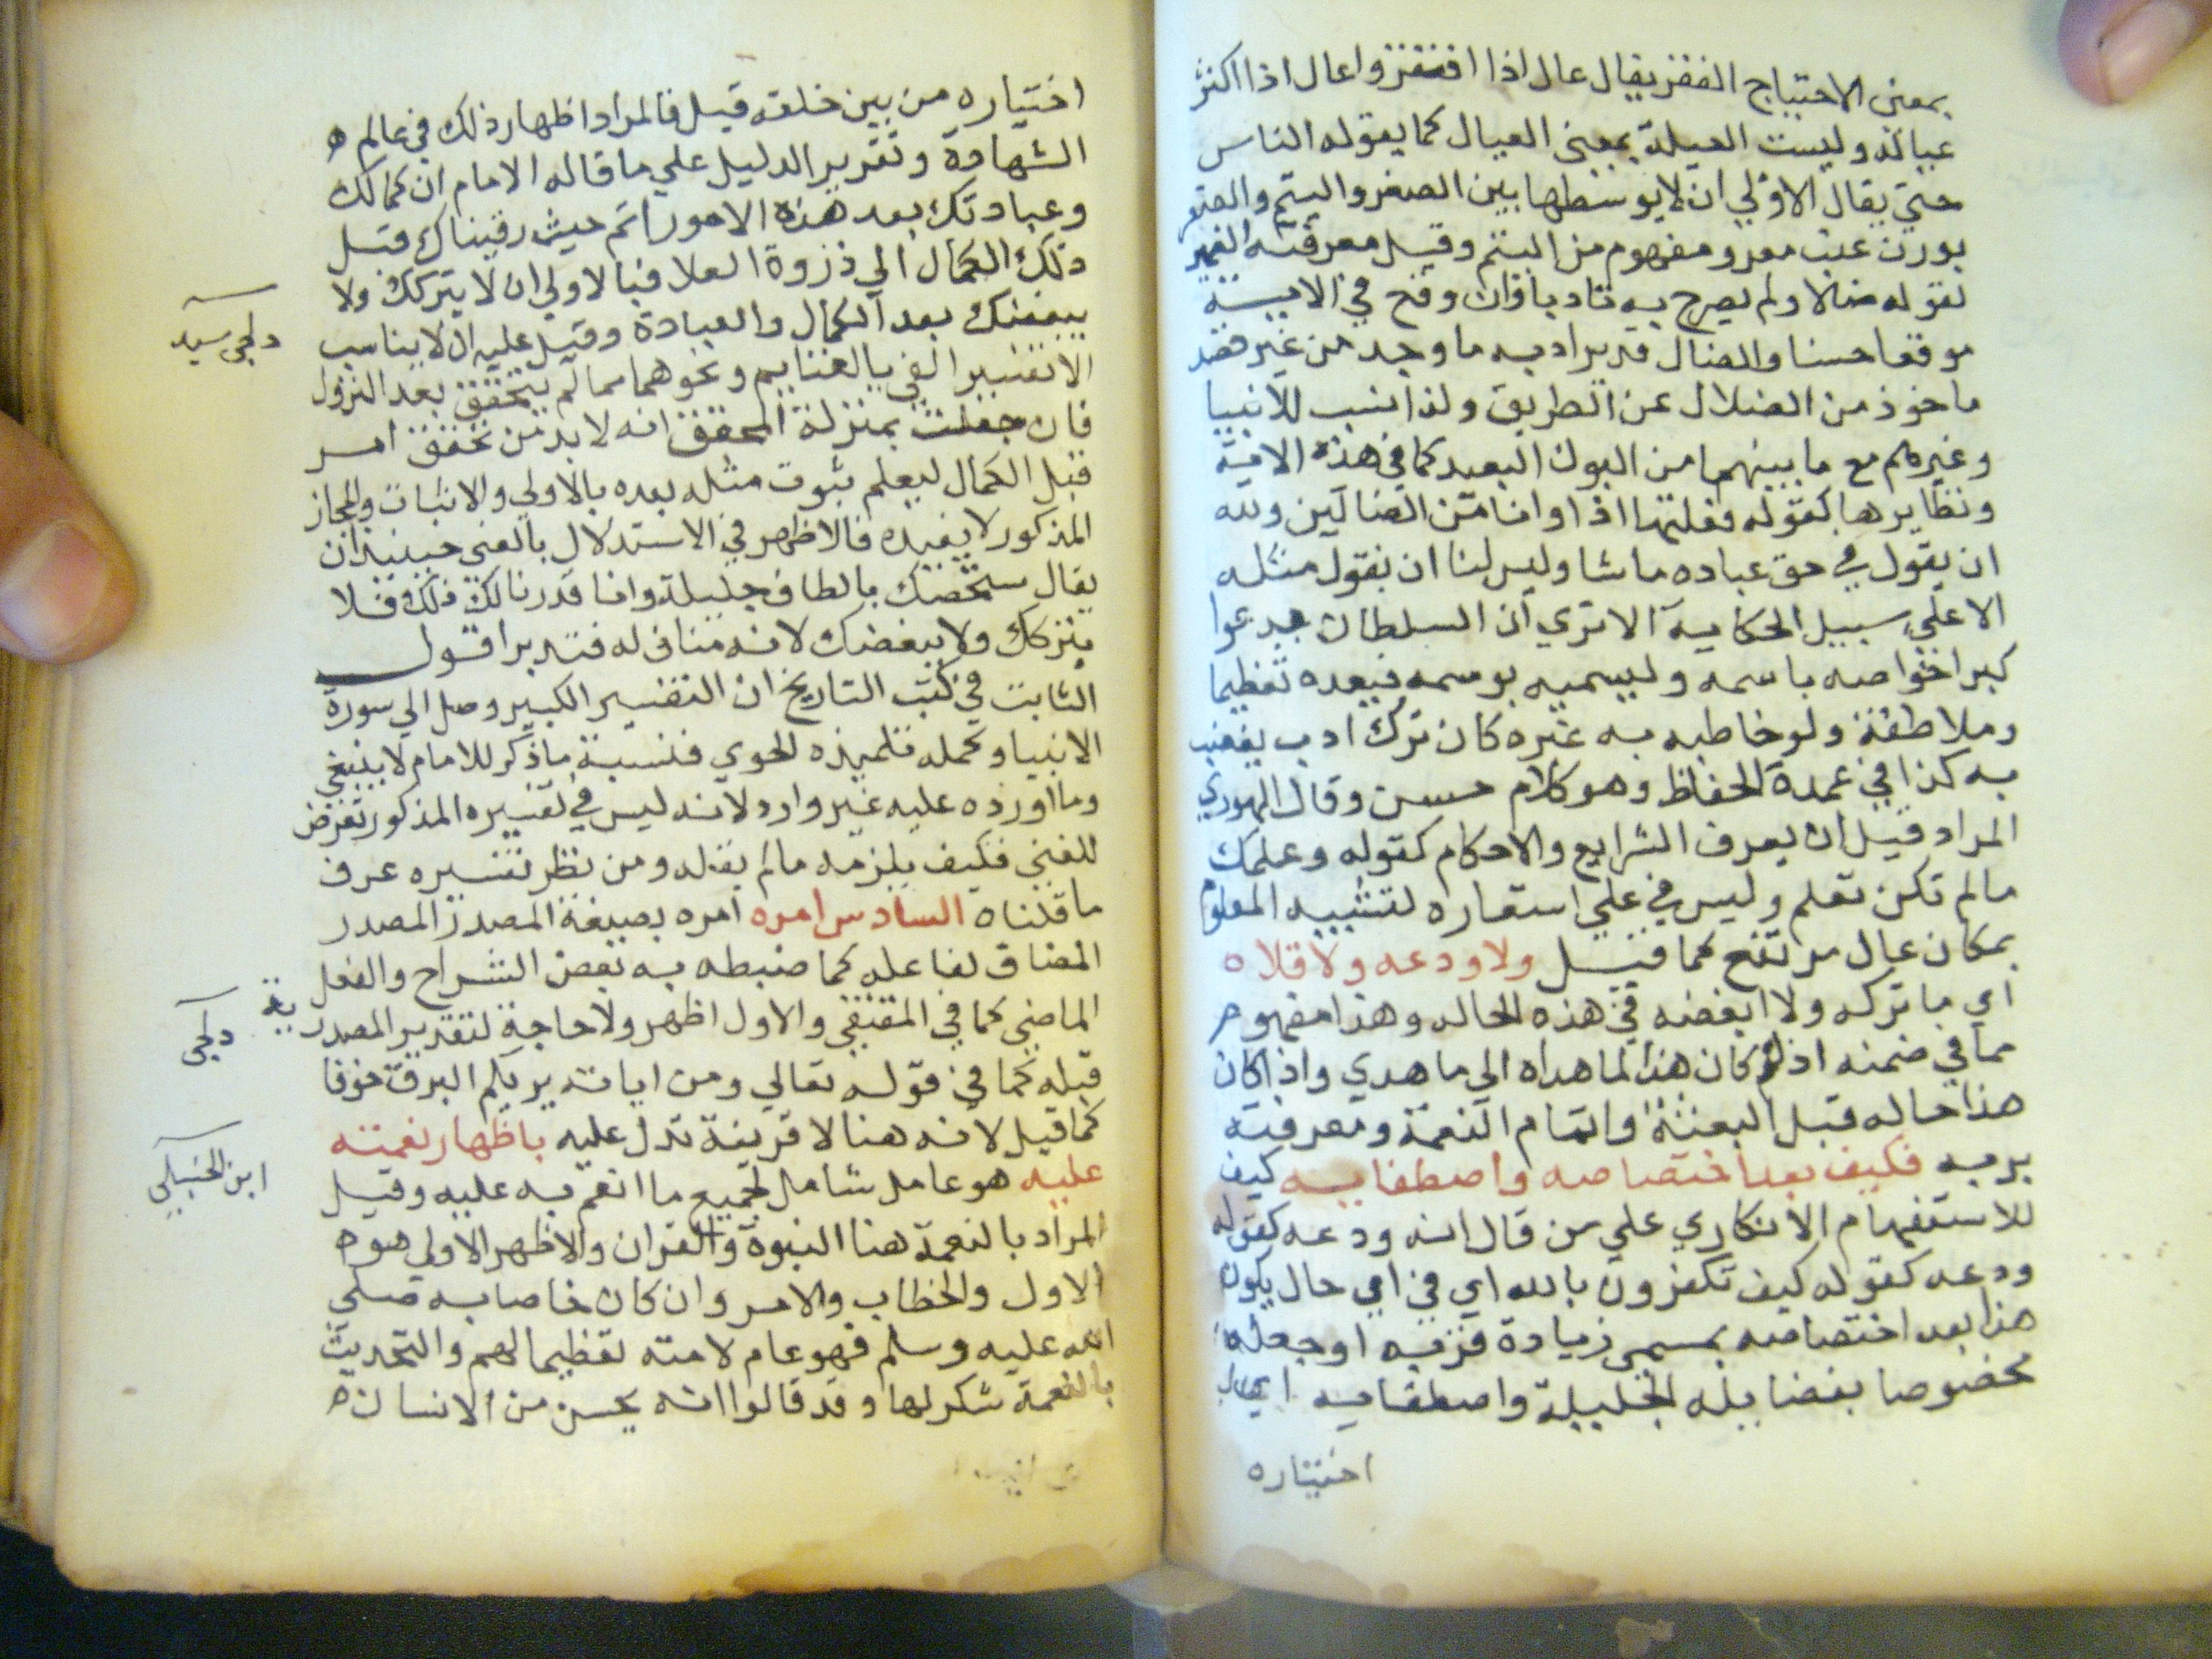 بمعنى الاحتياج الفقر يقال عال اذا افتقر واعال اذا اكثر
عياله وليست العيلة بمعنى العيال كما يقوله الناس
حتي يقال الاولي ان لا يوسطها بين الصغر واليتم
مفهوم من اليتم وقيل معرفته
لقوله ضالا ولم يصرح به تادبا وان وقع في الاية
موقعا حسنا والضال قد يراد به ما وجد من غير قصد
ماخوذ من الضلال عن الطريق ولذا نسب للانبيا
وغيرهم مع ما بينهما من البون البعيد كما في هذه الاية
ونظايرها كقوله فعلتها اذا وانا من الضالين ولله
ان يقول في حق عباده ما شا وليس لنا ان نقول مثله
الا علي سبيل الحكاية الا تري ان السلطان يدعوا
كبرا خواصه باسمه وليسميه بوسمه فيعده تعظيما
وملاطفة ولو خاطبه به غيره كان ترك ادب يغضب
به كذا في عمدة الحفاظ وهو كلام حسن وقال المهدوي
المراد قيل ان يعرف الشرايع والاحكام كقوله وعلمك
مالم تكن تعلم وليس في علي استعاره لتشبيه المعلوم
بمكان عال مرتفع كما قيل ولا ودعه ولا قلاه
اي ما تركه ولا ابغضه في هذه الحاله وهذا مفهوم
مما في ضمنه اذ لو كان هذا لما هداه الي ما هدي واذا كان
هذا حاله قبل البعثة واتمام النعمة ومعرفته
بربه فكيف بعد اختصاصه واصطفايه كيف
للاستفهام الانكاري علي من قال انه ودعه كقوله
ودعه كقوله كيف تكفرون بالله اي في اي حال يكون
هذا بعد اختصاصه بمسمي زيادة قربه او جعله
مخصوصا بفضايله الجليلة واصطفايه اي
اختياره
اختياره من بين خلقه قيل فالمراد اظهار ذلك في عالم ه
الشهادة وتقرير الدليل علي ما قاله الامام ان كمالك
وعبادتك بعد هذه الامور اتم حيث رقيناك قبل
ذلك الكمال الي ذزوة العلا فبالاولي ان لا يتركك ولا
يبغضك بعد الكمال والعبادة وقيل عليه ان لا يناسب
دلجي سيد
الا تفسير الغني بالغنايم ونحوهما مما لم يتحقق بعد النزول
فان جعلت بمنزلة المحقق انه لا بد من تحقق امر
قبل الكمال ليعلم ثبوت مثله بعده بالاولي والاثبات والمجاز
المذكور لا يفيده فالاظهر في الاستدلال بالغني حينيذ ان
يقال سنخصك بالطاف جليلة وانا قدرنا لك ذلك فلا
يتركك ولا يبغضك لانه مناف له فتدبر اقول
الثابت في كتب التاريخ ان التفسير الكبير وصل الي سورة
الانبيا وكمله تلميذه الخوي فنسبة ما ذكر للامام لا ينبغي
وما اورده عليه غير وارد لانه ليس في تفسيره المذكور تعرض
للغني فكيف يلزمه مالم يقله ومن نظر تفسيره عرف
ما قلناه السادس امره امره بصيغة المصدر المصدر
المضاف لفاعله كما ضبطه به بعض الشراح والفعل
الماضي كما في المقتفي والاول اظهر ولا حاجة لتقدير المصدرية
دلجي
قبله كما في قوله تعالي ومن اياته يريكم البرق خوفا
كما قيل لانه هنا لا قرينة تدل عليه باظهار نعمته
عليه هو عامل شامل لجميع ما انعم به عليه وقيل
ابن الحنبلي
المراد بالنعمة هنا النبوة والقران والاظهر الاولي هو ه
الاول والخطاب والامر وان كان خاصا به صلي
الله عليه وسلم فهو عام لامته تعظيما لهم والتحديث
بالنعمة شكر لها وقد قالوا انه يحسن من الانسان ه